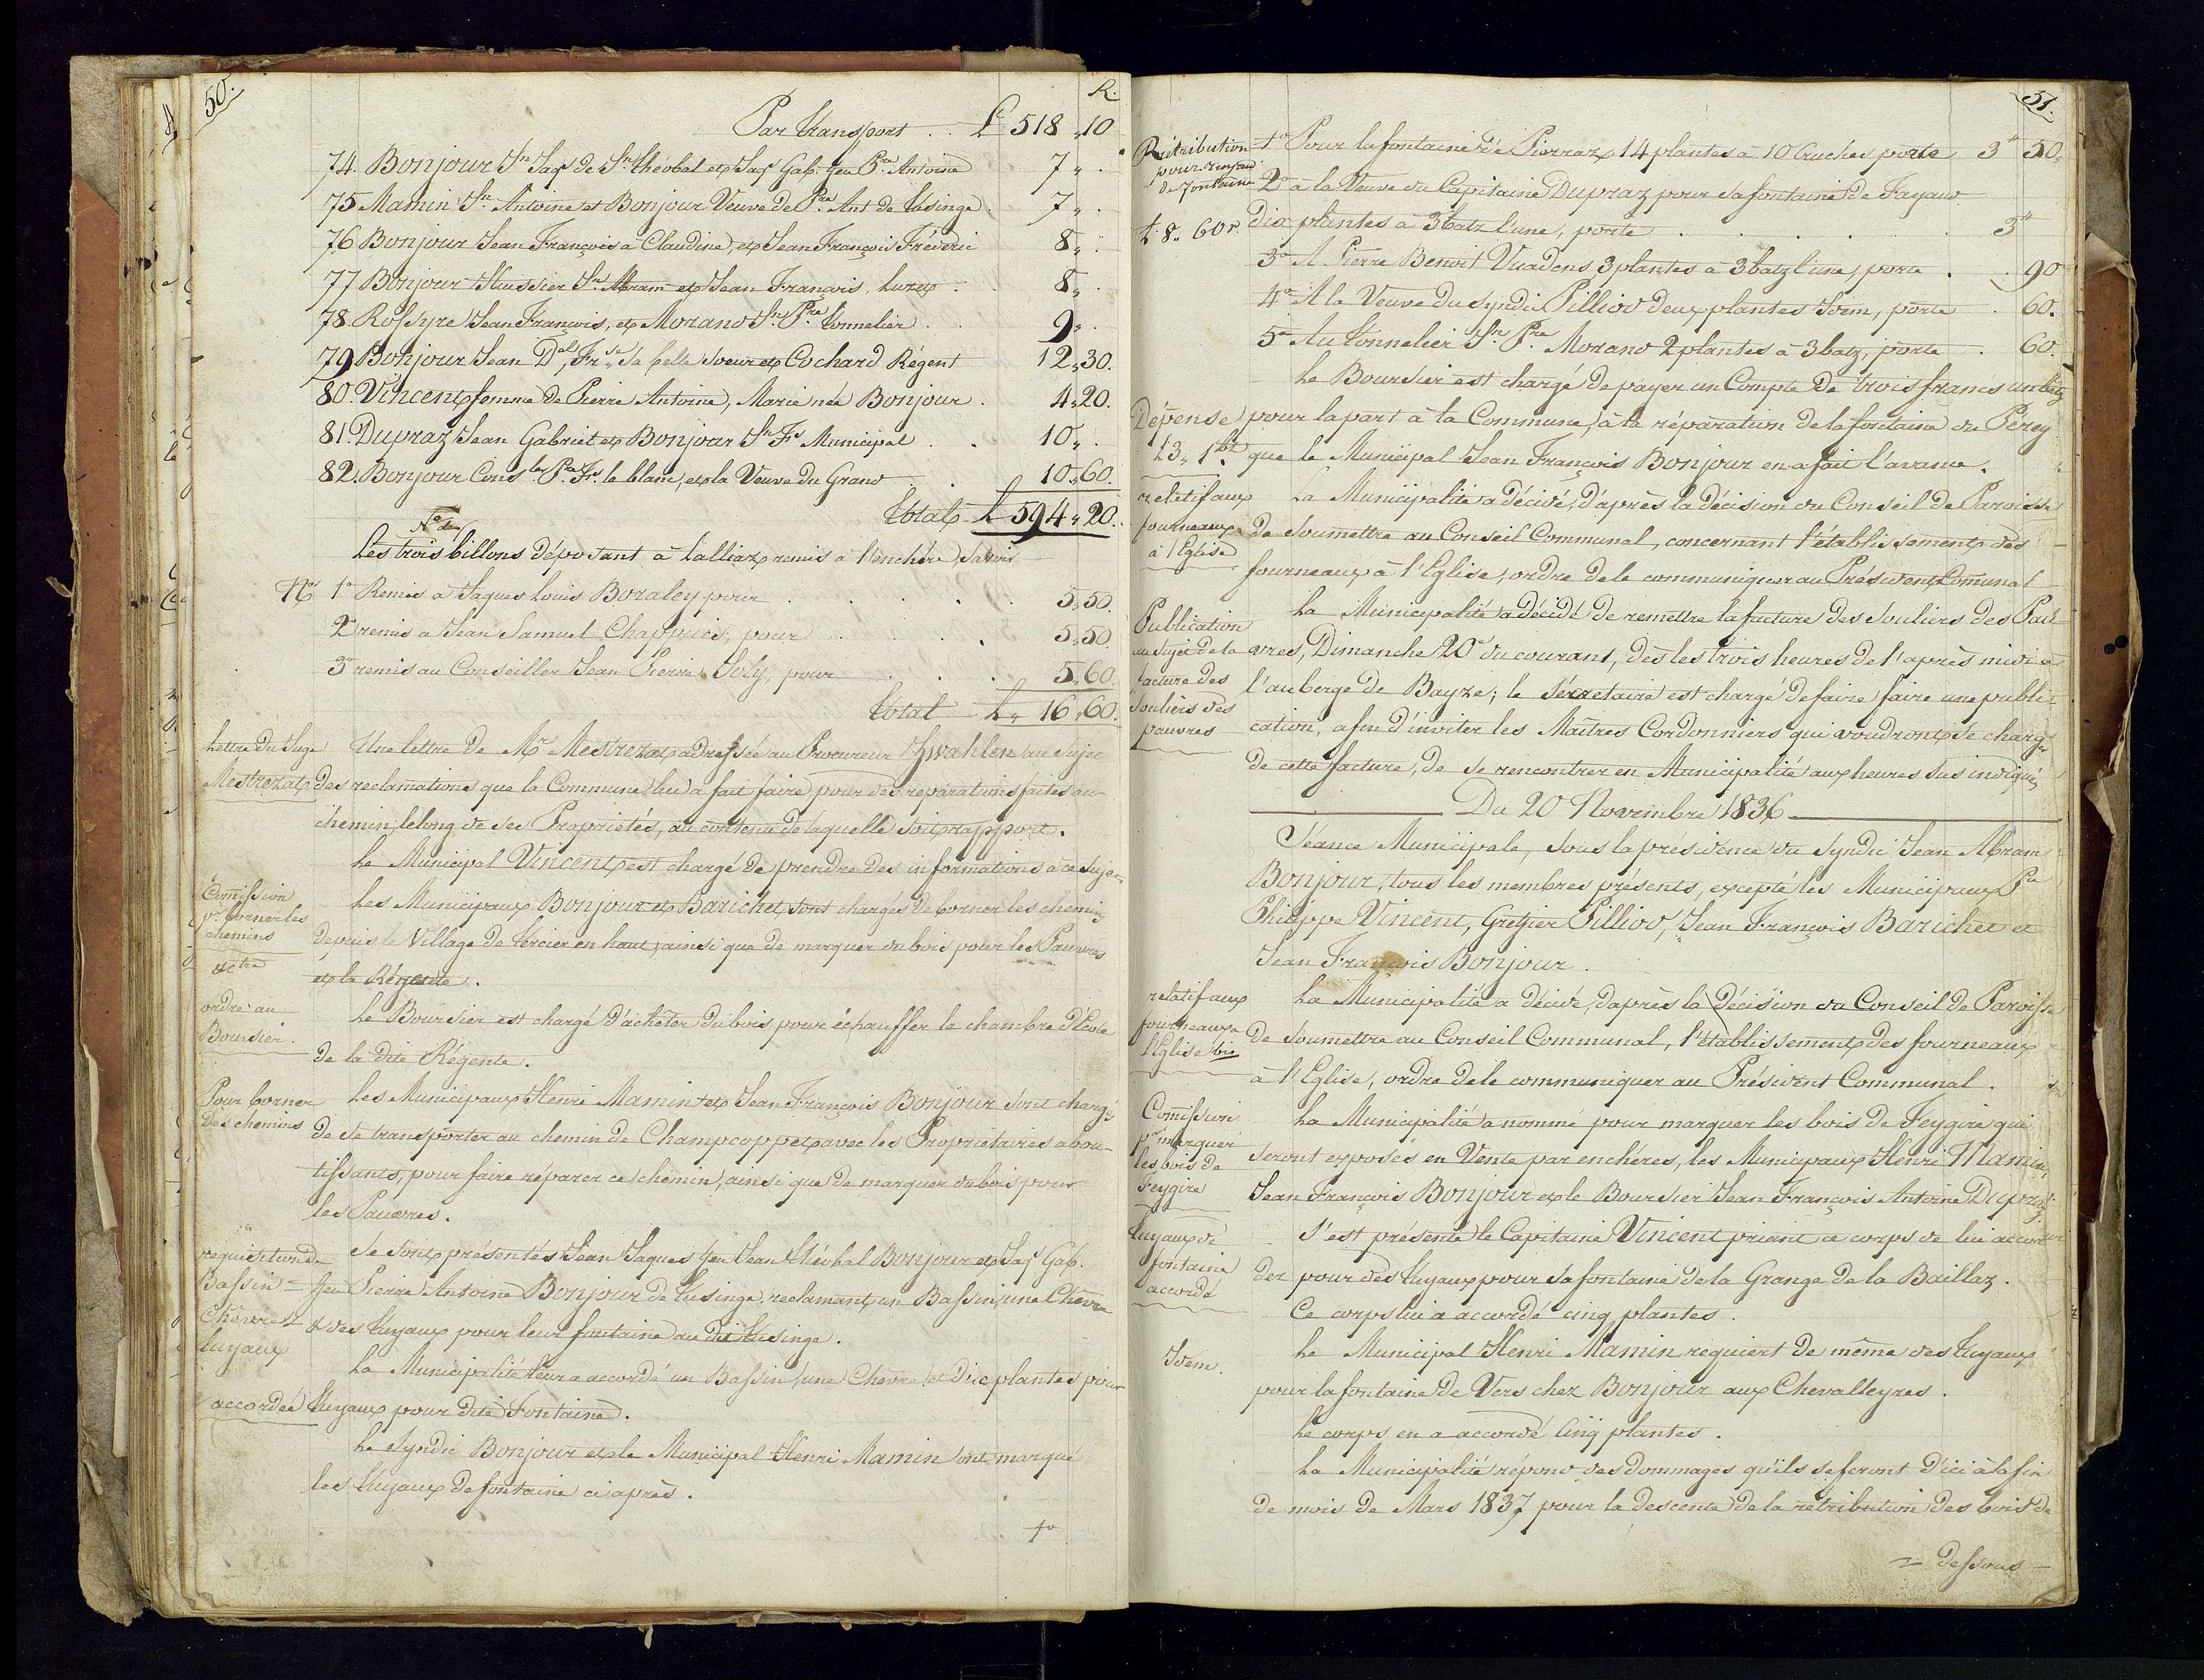 50.
R.
Par transport . . L 518 „ 10
74. Bonjour Sn Jaq de Sn Théobal et Jaq Gab. feu Pre Antoine 7 „ .
75 Mamin Sn Antoine et Bonjour Veuve de Pre Ant de Lusinge. 7 „ .
76 Bonjour Jean François à Claudine, et Jean François Fréderic 8 „ .
77 Bonjour Huissier Sn Abram et Jean François, Luret . . 8 „ .
78. Rossyre Jean François, et Morand Sn Pre tonnelier . . 9 „ .
79 Bonjour Jean Del, Frse sa belle soeur et Cochard Régent 12 „ 30.
80. Vincent femme de Pierre Antoine, Marie née Bonjour . 4 „ 20.
81. Dupraz Jean Gabriel et Bonjour Sn Fs Municipal . . 10 „ .
82. Bonjour Consler Pre Fs. le blanc, et la Veuve du Grand . . 10 „ 60.
Total L 594 „ 20.
Les trois billons déposant à Lalliaz remis à l'enchère, savoir
No 1o Remis à Jaques Louis Boraley pour . . . . . 5 „ 50.
2o remis a Jean Samuel Chappuis, pour . . . . 5 „ 50.
3o remis au Conseiller Jean Pierre Joly, pour . . . 5 „ 60.
Total L „ 16 „ 60.
Lettre du Juge
Mestrezat
Une lettre de Mr Mestrezat adressée au Procureur Zwahlen au sujet
des reclamations que la Commune lui a fait faire pour des réparations faites au
chemin, le long de ses Propriétés, au contenu de laquelle soit rapport.
Le Municipal Vincent est chargé de prendre des informations à ce sujet
Comission
pr. borner les
chemins
&ctra
Les Municipaux Bonjour et Barichet, sont chargés de borner les chemins
depuis le Village de Tercier en haut, ainsi que de marquer du bois pour les Pauvres
et la Régente.
ordre au
Boursier.
Le Boursier est chargé d'achêter du bois pour échauffer la chambre d'Ecole
de la dite Régente.
Pour borner
des chemins
Les Municipaux Henri Mamin et Jean François Bonjour sont chargés
de se transporter au chemin de Champcoppet avec les Propriétaires abou-
tissants, pour faire réparer ce chemin, ainsi que de marquer du bois pour
les Pauvres.
requiert un
Bassin
Chèvre &
tuyaux
accordée
Se sont présentés Jean Jaques feu Jean Théobal Bonjour et Jaq Gab.
feu Pierre Antoine Bonjour de Lusinge, reclamant un Bassin, une Chèvre
& des tuyaux pour leur fontaine au dit Lusinge.
La Municipalité leur a accordé un Bassin, une Chèvre, et dix plantes pour
tuyaux pour dite Fontaine.
Le Syndic Bonjour et le Municipal Henri Mamin ont marqué
les tuyaux de fontaine ci après.
1o
51.
Rétribution
de fontaine
L. 8 „ 60 r.
1o Pour la fontaine de Pierraz 14 plantes à 10 Cruches porte 3 „ 50.
2o à la Veuve du Capitaine Dupraz pour sa fontaine de Fayaux
dix plantes à 3 batz l'une, porte . . . . . . 3 „
3o A Pierre Benoit Vuadens 3 plantes à 3 batz l'une, porte . . 90
4o A la Veuve du syndic Pilliod deux plantes Idem, porte . 60.
5o Au tonnelier Sn Pre Morand 2 plantes à 3 batz, porte . 60.
Dépense
L 3 „ 1 bt
Le Boursier est chargé de payer un Compte de trois francs un batz
pour la part à la Commune, à la réparation de la fontaine du Perey
que le Municipal Jean François Bonjour en a fait l'avance.
reletif aux
fourneaux
à l'Eglise
La Municipalité a décidé, d'après la décision du Conseil de Paroisse
de soumettre au Conseil Communal, concernant l'établissement des
fourneaux à l'Eglise, ordre de le communiquer au Président Comunal
Publication
au sujet de la
facture des
souliers des
pauvres
La Municipalité a décidé de remettre la facture des Souliers des Pau-
vres, Dimanche 20e du courant, dès les trois heures de l'après midi à
l'auberge de Bayze; le sécretaire est chargé de faire faire une publi-
cation, afin d'inviter les Maîtres Cordonniers qui voudront se charger
de cette facture, de se rencontrer en Municipalité aux heures sus indiqués
Du 20 Novembre 1836.
Séance Municipale, sous la présidence du Syndic Jean Abram
Bonjour, tous les membres présents, excepté les Municipaux Pre
Philippe Vincent, Greffier Pilliod, Jean François Barichet et
Jean François Bonjour.
relatif aux
fourneaux à
l'Eglise bis
La Municipalité a décidé, d'après la décision du Conseil de Paroisse
de soumettre au Conseil Communal, l'établissement des fourneaux
à l'Eglise, ordre de le communiquer au Président Communal.
Comission
pr marquer
les bois de
Feygire
La Municipalité a nommé pour marquer les bois de Feygire qui
seront exposés en Vente par enchères, les Municipaux Henri Mamin,
Jean François Bonjour et le Boursier Jean François Antoine Dupraz.
tuyaux de
fontaine
accordé
S'est présenté le Capitaine Vincent priant ce corps de lui accor-
der pour des tuyaux pour sa fontaine de la Grange de la Baillaz.
Ce corps lui a accordé cinq plantes.
Idem.
Le Municipal Henri Mamin requiert de même des tuyaux
pour la fontaine de Vers chez Bonjour aux Chevalleyres.
Le corps en a accordé Cinq plantes.
La Municipalité répond des dommages qu'ils se feront d'ici à la fin
de mois de Mars 1837 pour la descente de la rétribution des bois de
= dessous